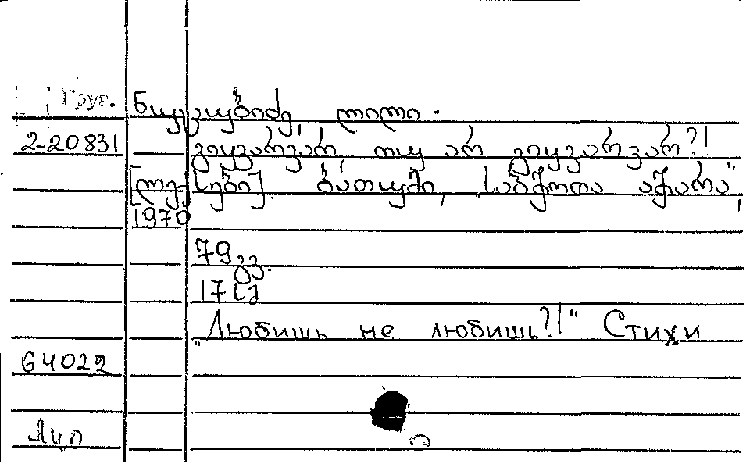 Груз. ნუცუბიძე, ლილი.
2-20831 გიყვარვარ თუ არ გიყვარვარ?!
[ლექსები]. ბათუმი, „საბჭოთა აჭარა",
1970
79 გვ.
17 სმ
„Любишь не любишь?!" Стихи
64022